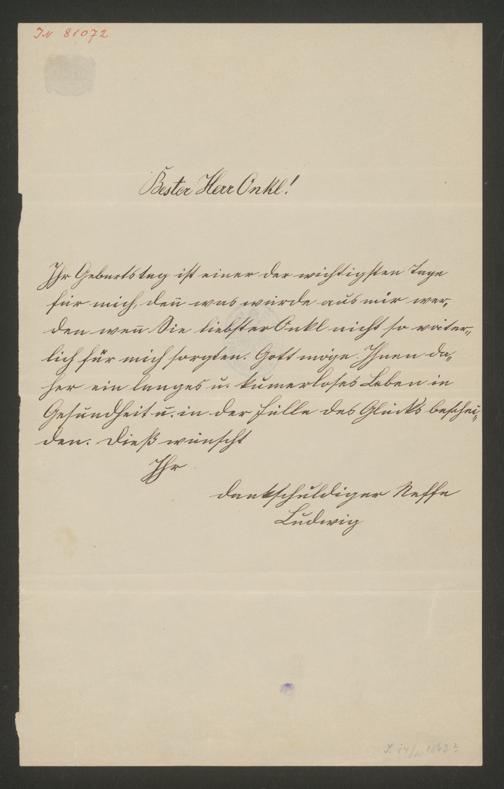 IN 81072
Bester Herr Onkl!
Ihr Geburtstag ist einer der wichtigsten Tage
für mich, deñ was würde aus mir wer„
den weñ Sie liebster Onkl nicht so väter„
lich für mich sorgten. Gott möge Ihnen da„
her ein langes u. kumerloses Leben in
Gesundheit u. in der Fülle des Glücks beschei„
den. Dieß wünscht
Ihr
dankschuldiger Neffe
Ludwig